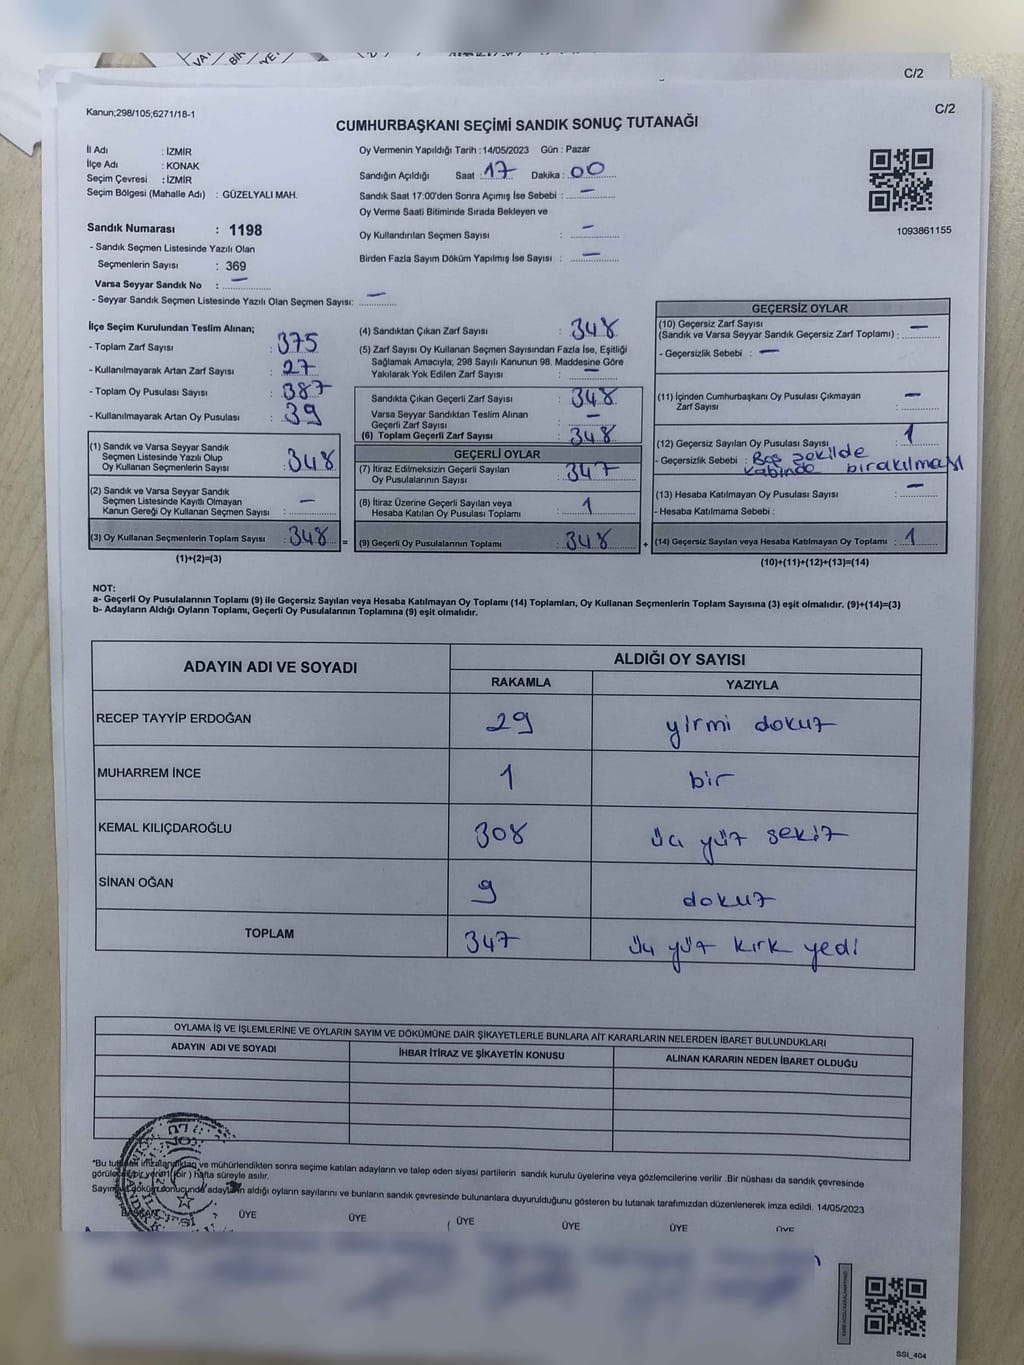 C/2
C/2
Kanun;298/105;6271/18-1
CUMHURBAŞKANI SEÇİMİ SANDIK SONUÇ TUTANAĞI
İl Adı : İZMİR
İlçe Adı : KONAK
Seçim Çevresi : İZMİR
Seçim Bölgesi (Mahalle Adı) : GÜZELYALI MAH.
Sandık Numarası : 1198
- Sandık Seçmen Listesinde Yazılı Olan
Seçmenlerin Sayısı : 369
Varsa Seyyar Sandık No : —
- Seyyar Sandık Seçmen Listesinde Yazılı Olan Seçmen Sayısı: —
Oy Vermenin Yapıldığı Tarih : 14/05/2023 Gün : Pazar
Sandığın Açıldığı Saat : 17 Dakika : 00
Sandık Saat 17:00'den Sonra Açımış İse Sebebi : —
Oy Verme Saati Bitiminde Sırada Bekleyen ve
Oy Kullandırılan Seçmen Sayısı : —
Birden Fazla Sayım Döküm Yapılmış İse Sayısı : —
1093861155
İlçe Seçim Kurulundan Teslim Alınan;
- Toplam Zarf Sayısı : 375
- Kullanılmayarak Artan Zarf Sayısı : 27
- Toplam Oy Pusulası Sayısı : 387
- Kullanılmayarak Artan Oy Pusulası : 39
(1) Sandık ve Varsa Seyyar Sandık
Seçmen Listesinde Yazılı Olup
Oy Kullanan Seçmenlerin Sayısı : 348
(2) Sandık ve Varsa Seyyar Sandık
Seçmen Listesinde Kayıtlı Olmayan
Kanun Gereği Oy Kullanan Seçmen Sayısı : —
(3) Oy Kullanan Seçmenlerin Toplam Sayısı : 348 =
(1)+(2)=(3)
(4) Sandıktan Çıkan Zarf Sayısı : 348
(5) Zarf Sayısı Oy Kullanan Seçmen Sayısından Fazla İse, Eşitliği
Sağlamak Amacıyla; 298 Sayılı Kanunun 98. Maddesine Göre
Yakılarak Yok Edilen Zarf Sayısı : —
Sandıkta Çıkan Geçerli Zarf Sayısı : 348
Varsa Seyyar Sandıktan Teslim Alınan
Geçerli Zarf Sayısı : —
(6) Toplam Geçerli Zarf Sayısı : 348
GEÇERLİ OYLAR
(7) İtiraz Edilmeksizin Geçerli Sayılan
Oy Pusulalarının Sayısı : 347
(8) İtiraz Üzerine Geçerli Sayılan veya
Hesaba Katılan Oy Pusulası Toplamı : 1
(9) Geçerli Oy Pusulalarının Toplamı : 348 +
GEÇERSİZ OYLAR
(10) Geçersiz Zarf Sayısı
(Sandık ve Varsa Seyyar Sandık Geçersiz Zarf Toplamı) : —
- Geçersizlik Sebebi : —
(11) İçinden Cumhurbaşkanı Oy Pusulası Çıkmayan
Zarf Sayısı : —
(12) Geçersiz Sayılan Oy Pusulası Sayısı : 1
- Geçersizlik Sebebi : Boş şekilde
kabinde bırakılması
(13) Hesaba Katılmayan Oy Pusulası Sayısı : —
- Hesaba Katılmama Sebebi :
(14) Geçersiz Sayılan veya Hesaba Katılmayan Oy Toplamı : 1
(10)+(11)+(12)+(13)=(14)
NOT:
a- Geçerli Oy Pusulalarının Toplamı (9) ile Geçersiz Sayılan veya Hesaba Katılmayan Oy Toplamı (14) Toplamları, Oy Kullanan Seçmenlerin Toplam Sayısına (3) eşit olmalıdır. (9)+(14)=(3)
b- Adayların Aldığı Oyların Toplamı, Geçerli Oy Pusulalarının Toplamına (9) eşit olmalıdır.
ADAYIN ADI VE SOYADI ALDIĞI OY SAYISI
RAKAMLA YAZIYLA
RECEP TAYYİP ERDOĞAN 29 yirmi dokuz
MUHARREM İNCE 1 bir
KEMAL KILIÇDAROĞLU 308 üç yüz sekiz
SİNAN OĞAN 9 dokuz
TOPLAM 347 üç yüz kırk yedi
OYLAMA İŞ VE İŞLEMLERİNE VE OYLARIN SAYIM VE DÖKÜMÜNE DAİR ŞİKAYETLERLE BUNLARA AİT KARARLARIN NELERDEN İBARET BULUNDUKLARI
ADAYIN ADI VE SOYADI İHBAR İTİRAZ VE ŞİKAYETİN KONUSU ALINAN KARARIN NEDEN İBARET OLDUĞU
*Bu tutanak imzalandıktan ve mühürlendikten sonra seçime katılan adayların ve talep eden siyasi partilerin sandık kurulu üyelerine veya gözlemcilerine verilir .Bir nüshası da sandık çevresinde
görülecek bir yerin1( bir ) hafta süreyle asılır.
Sayım döküm sonucunda adayların aldığı oyların sayılarını ve bunların sandık çevresinde bulunanlara duyurulduğunu gösteren bu tutanak tarafımızdan düzenlenerek imza edildi. 14/05/2023
BAŞKAN ÜYE ÜYE ÜYE ÜYE ÜYE ÜYE
SSI_404